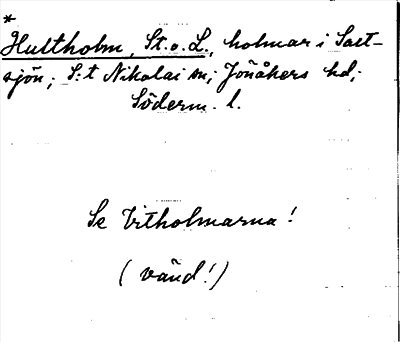 *
Hultholm, St. o. L., holmar i Salt-
sjön; S:t Nikolai sn; Jönåkers hd;
Söderm. l.
Se Vitholmarna!
(vänd!)